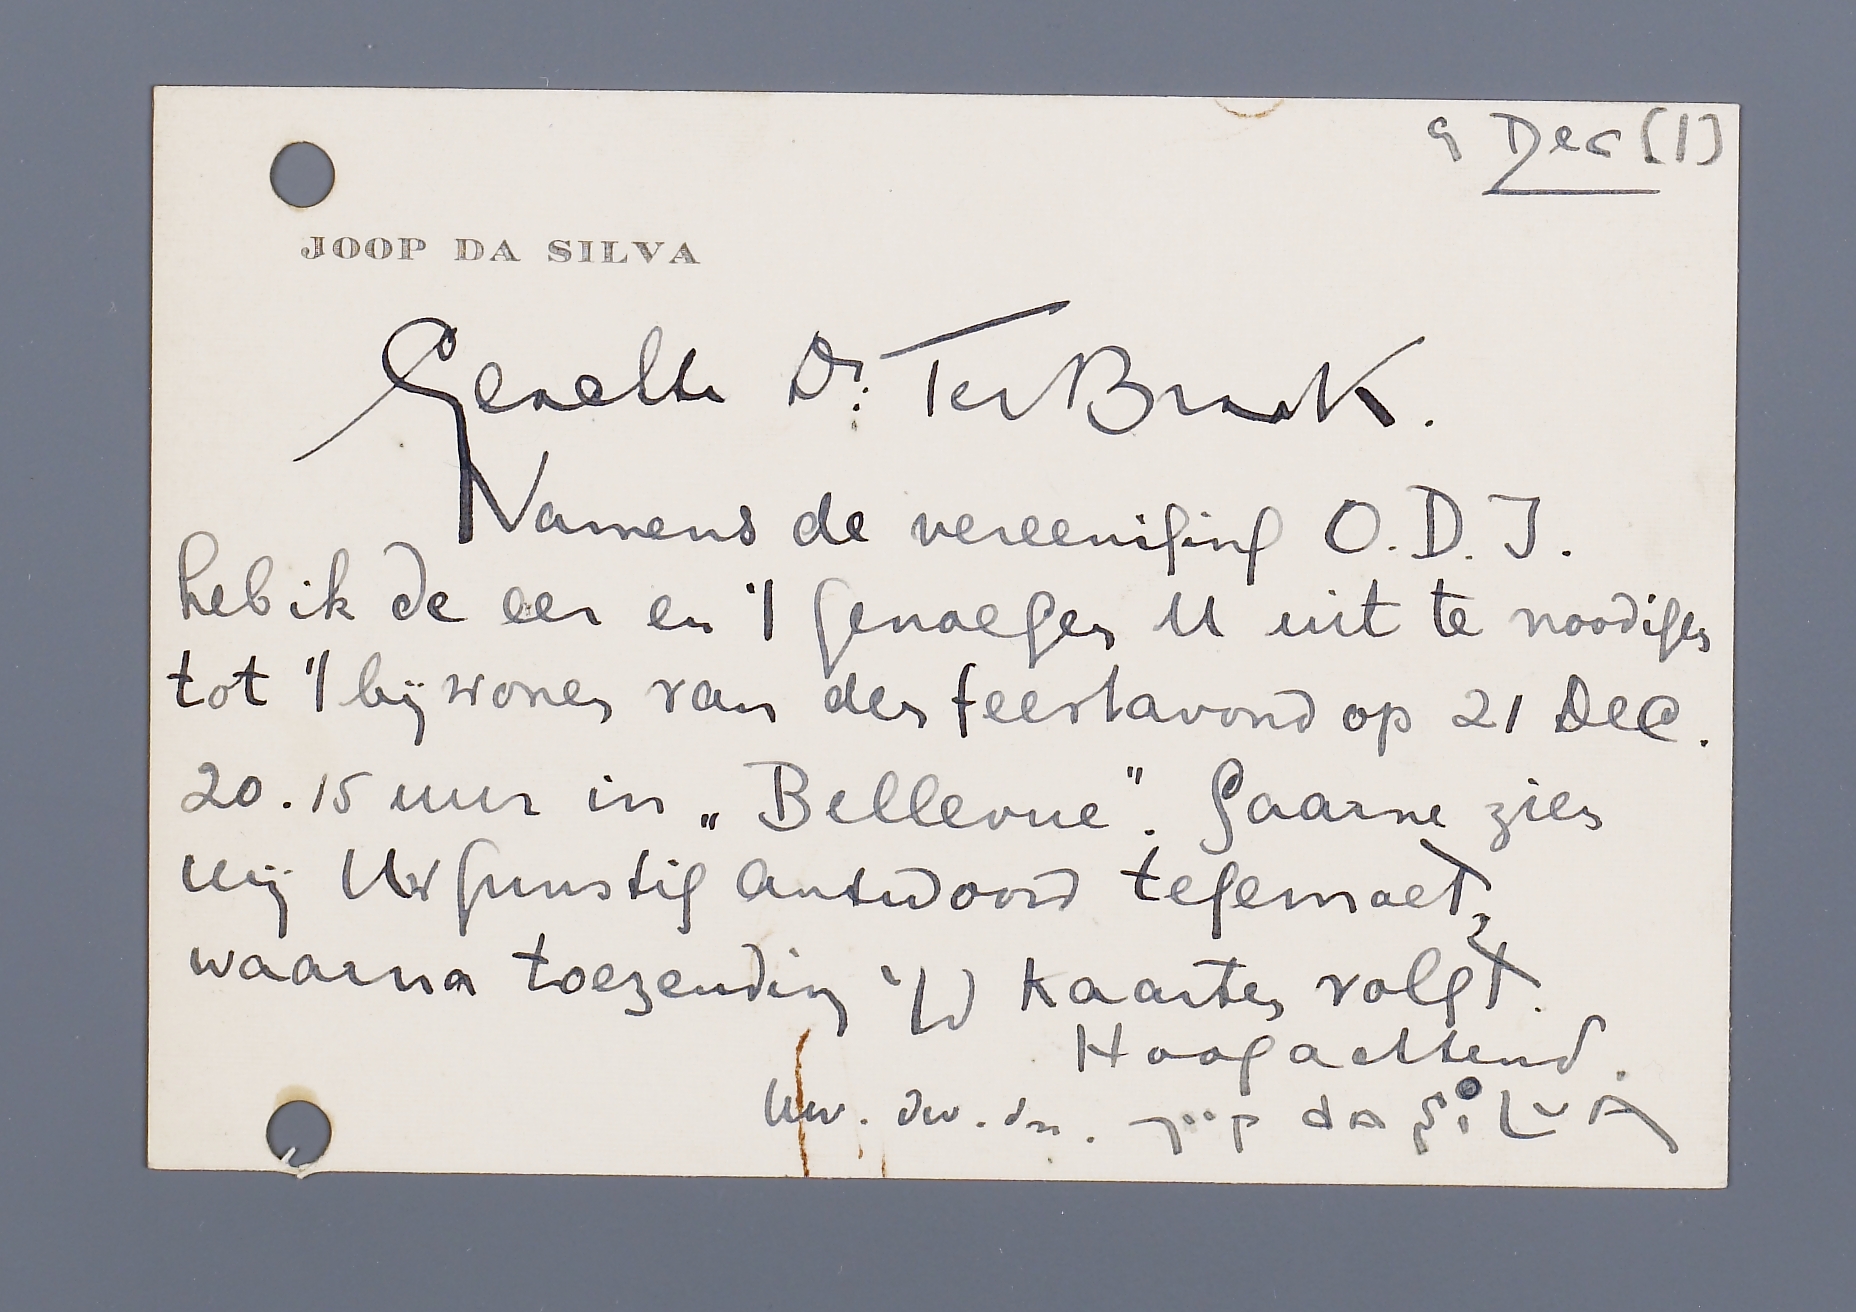 9 Dec [1]
JOOP DA SILVA
Geachte Dr. Ter Braak.
Namens de vereeniging O.D.I.
heb ik de eer en 't genoegen U uit te noodigen
tot 't bijwonen van den feestavond op 21 Dec.
20.15 uur in „Bellevue". Gaarne zien
wij Uw gunstig antwoord tegemoet,
waarna toezending kaarten volgt.
Hoogachtend.
Uw. dw. dn. joop da SiLVA